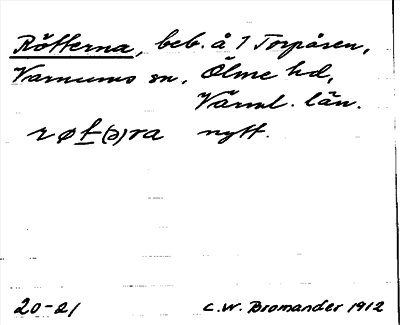 Rötterna, beb. å 1 Torpåsen,
Varnums sn, Ölme hd,
Värml. län.
r ø t (ə) ra nytt.
20-21 C.W. Bromander 1912